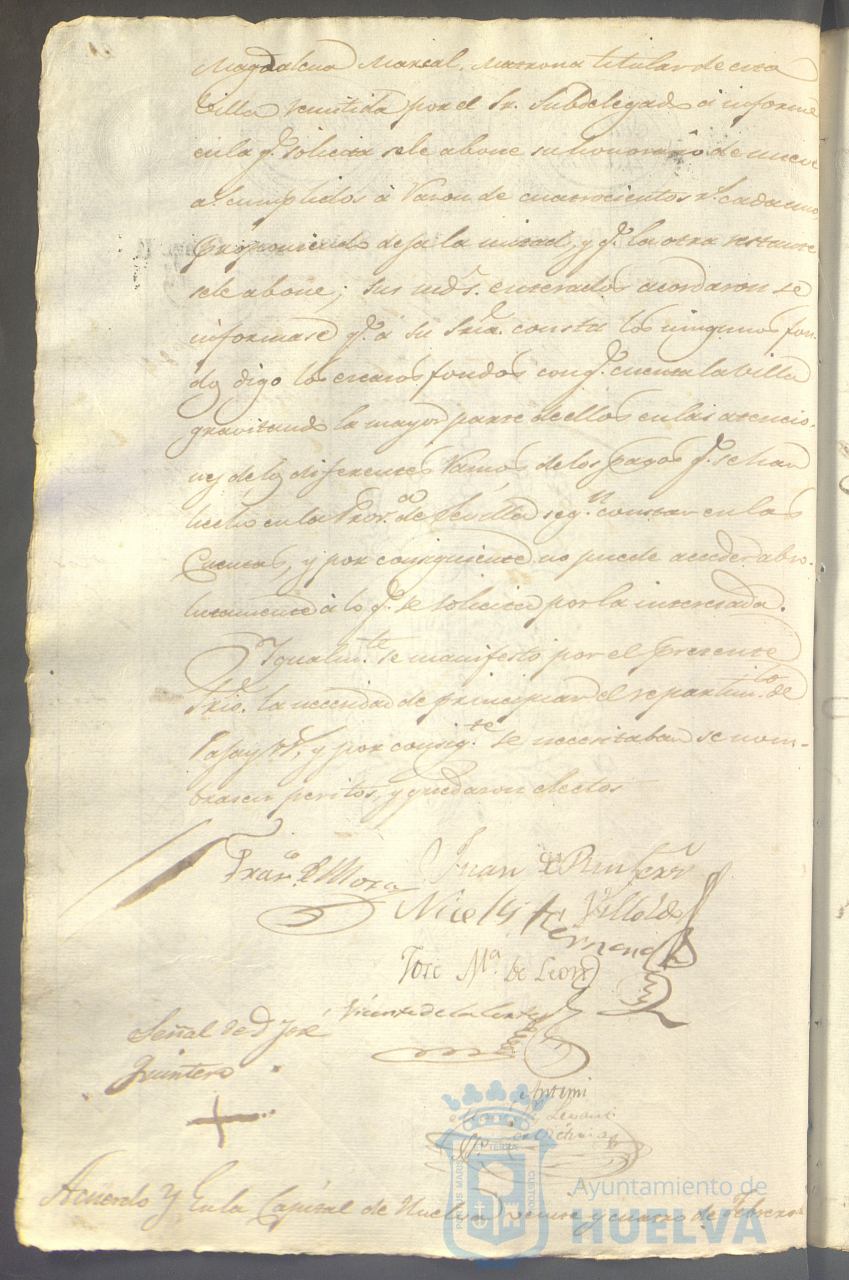 Magdalena Marsal, Matrona titular de esta
Villa remitida por el Sr. Subdelegado a informe
en la q.e solicita se le abone su honorario de nueve
a.s cumplidos à razon de cuatrocientos r.s cada uno
proponiendo deja la mitad, y q.e la otra restante
se le abone; sus mds. enterados acordaron se
informase q.e a su Sria. consta los ningunos fon-
dos digo los escasos fondos con q.e cuenta la Villa
gravitando la mayor parte de ellos en las atencio-
nes de los diferentes ramos de los pagos q.e se han
hecho en la de Sevilla seg.n constan en las
Cuentas, y por consiguiente no puede acceder abso-
lutamente à lo q.e se solicita por la interesada.
Igualm.te se manifesto por el presente
Srio. la necesidad de principiar el repartim.to de
y por consig.te se necesitaban se nom-
brasen peritos, y quedaron electos
Fran.co de Mora Juan
Nicolas Hernandez
José M.a de Leon
Vicente de la Corte
Señal de D. José
Quintero
Antemi
Acuerdo Y En la Capital de Huelva veinte y cuatro de Febrero
Ayuntamiento de
HUELVA